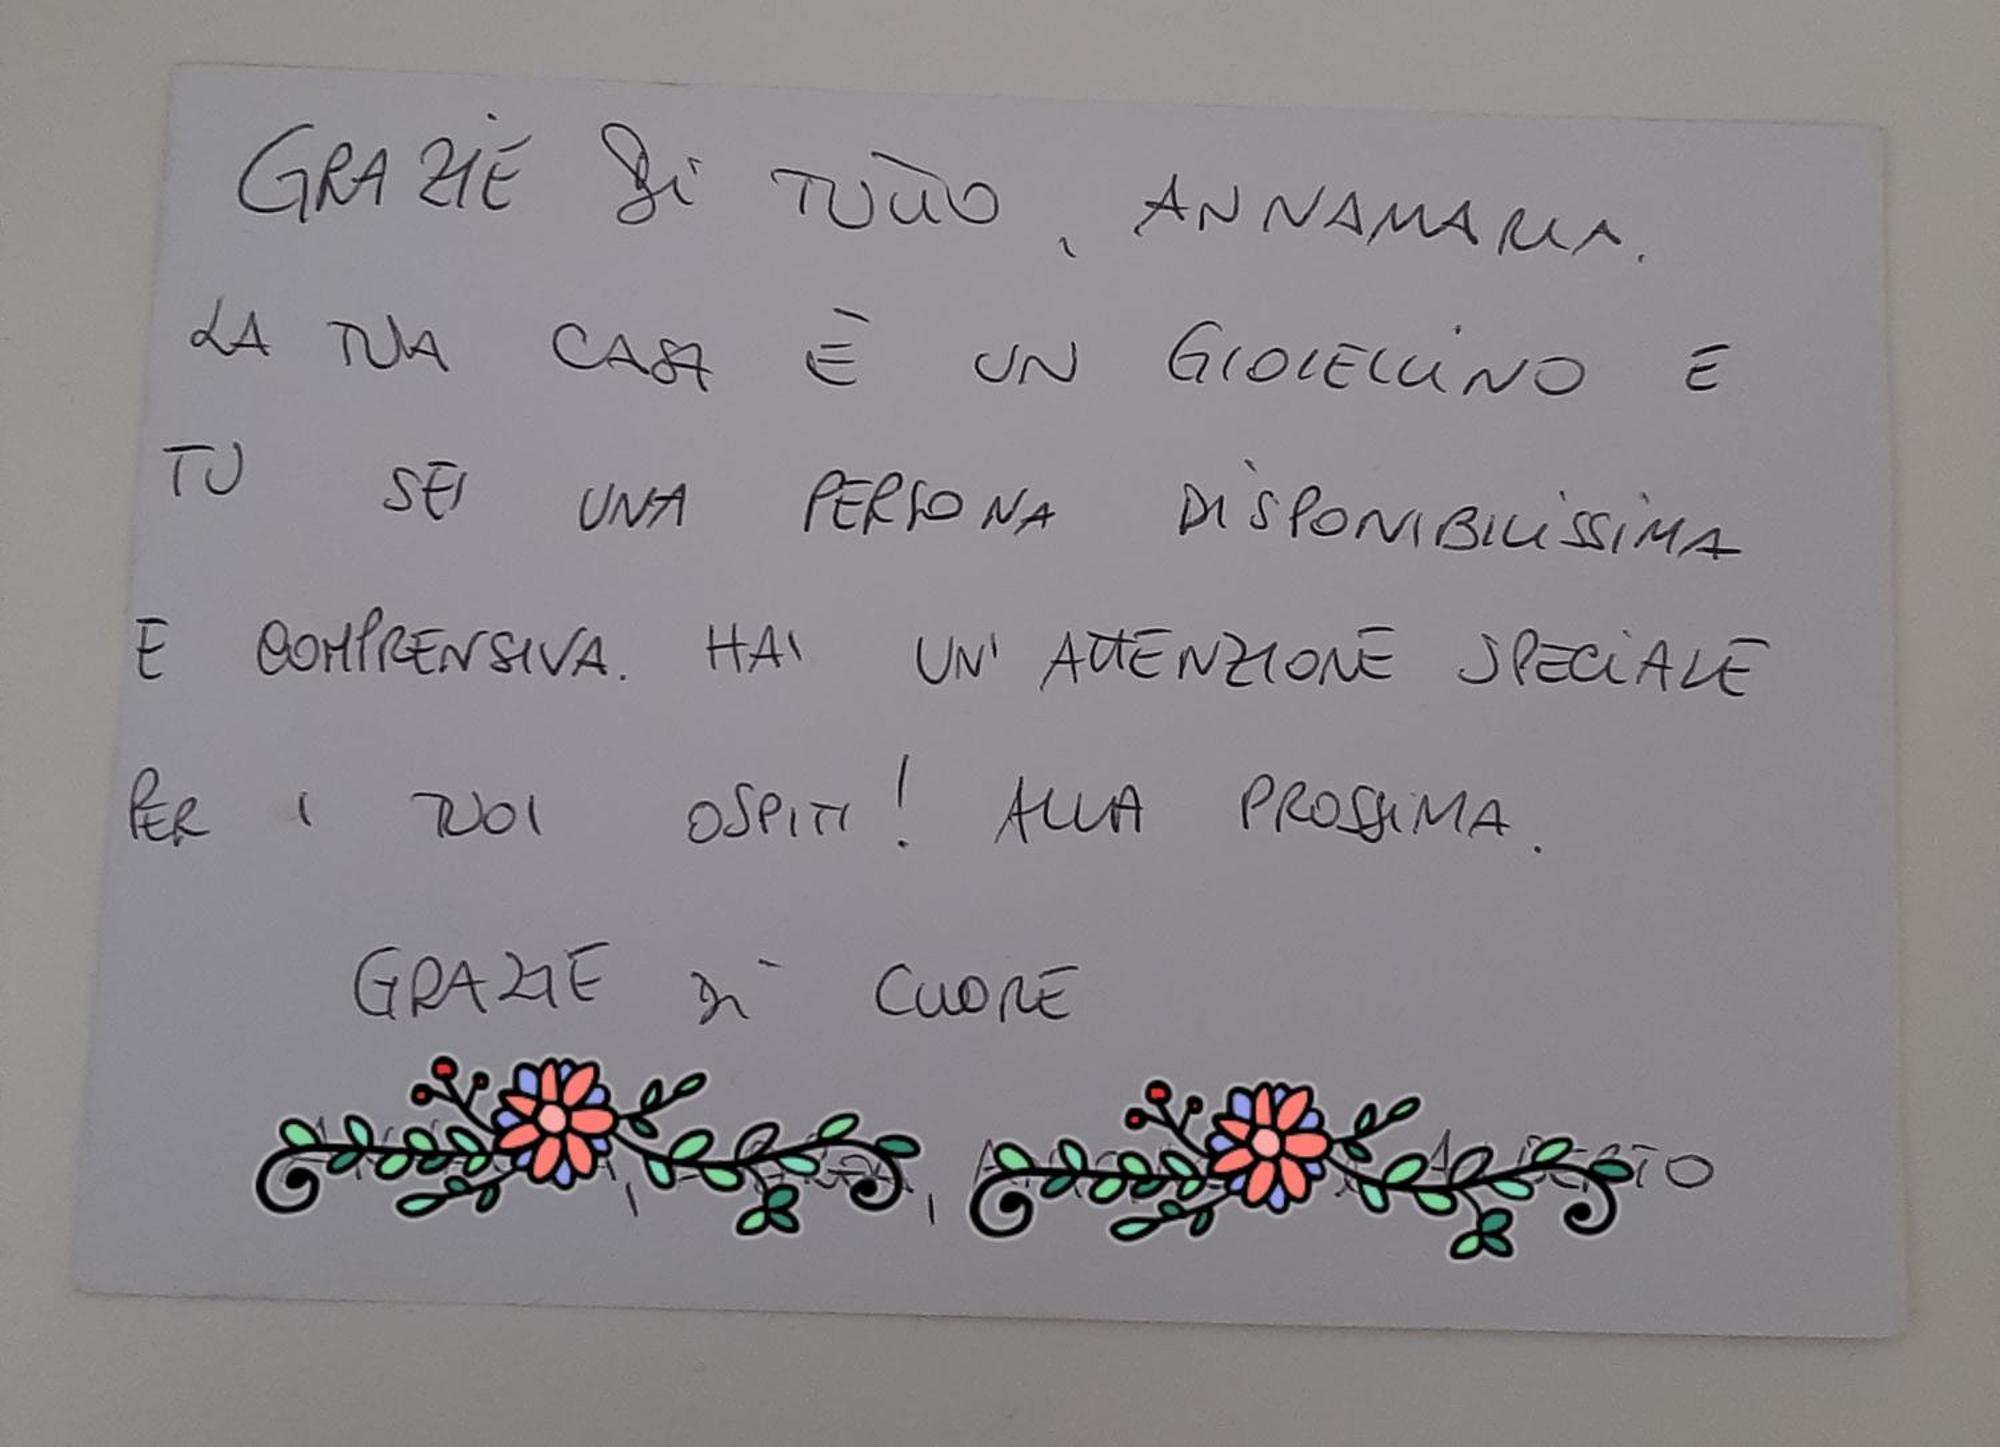 GRAZIE DI TUTTO, ANNAMARIA.
LA TUA CASA È UN GIOIELLINO E
TU SEI UNA PERSONA DISPONIBILISSIMA
E COMPRENSIVA. HAI UN'ATTENZIONE SPECIALE
PER I TUOI OSPITI! ALLA PROSSIMA.
GRAZIE DI CUORE